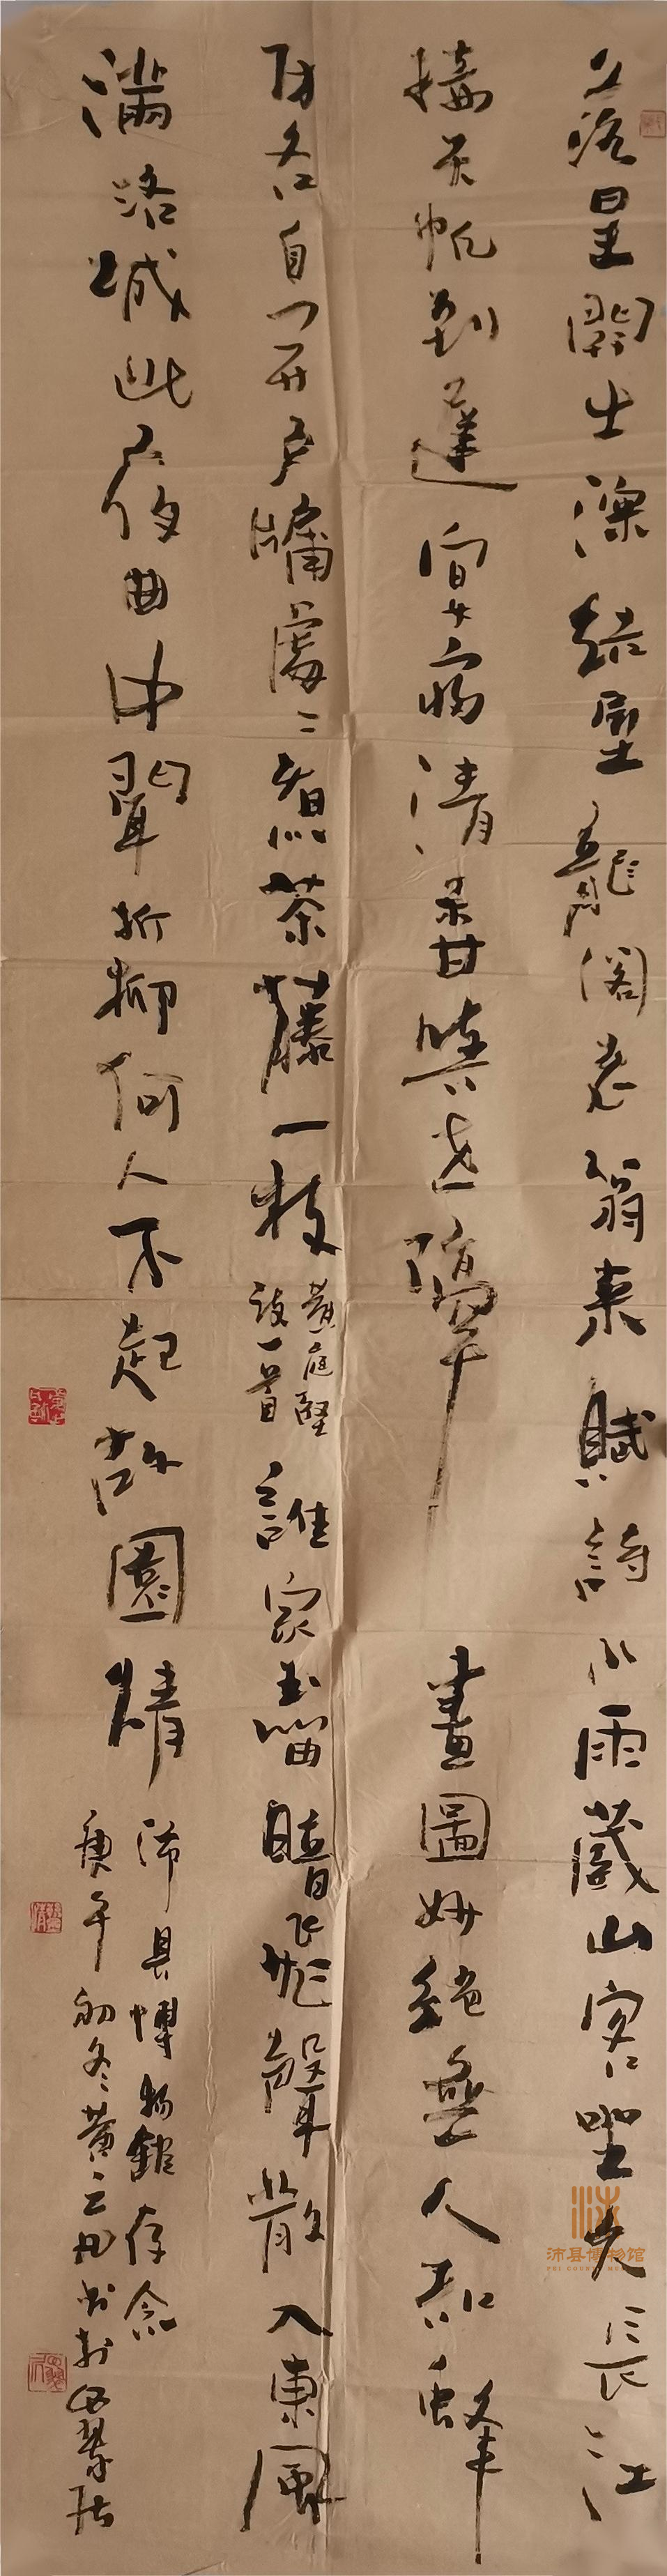 落星開士深結屋龍閣老翁來賦詩小雨藏山客坐久長江
接天帆到遲宴寢清香與世隔畫圖妙絕無人知蜂
房各自開戶牖處〻煮茶藤一枝
黃庭堅
詩一首
誰家玉笛暗飛聲散入東風
滿洛城此夜曲中聞折柳何人不起故園情
沛县博物館存念
庚午初冬黃云書於居
沛县博物馆
PEI COUNTY MUSEUM